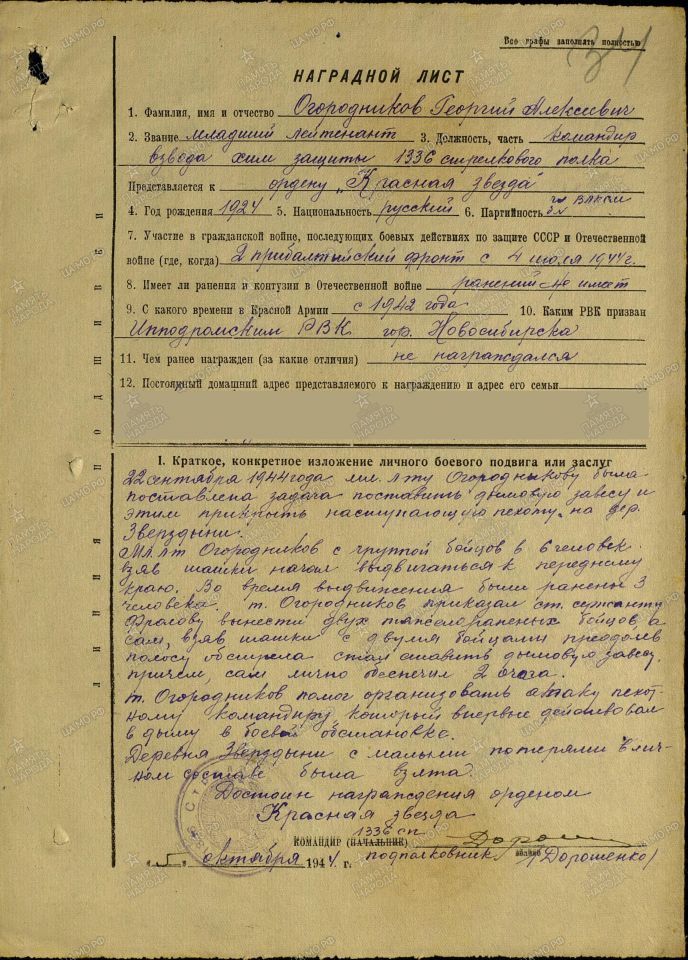 Все графы заполнять полностью
34
НАГРАДНОЙ ЛИСТ
1. Фамилия, имя и отчество Огородников Георгий Алексеевич
2. Звание младший лейтенант 3. Должность, часть командир
взвода хим защиты 1336 стрелкового полка
Представляется к ордену „Красная звезда"
4. Год рождения 1924 5. Национальность русский 6. Партийность чл ВЛКСМ
7. Участие в гражданской войне, последующих боевых действиях по защите СССР и Отечественной
войне (где, когда) 2 прибалтийский фронт с 4 июля 1944г.
8. Имеет ли ранения и контузии в Отечественной войне ранений не имеет
9. С какого времени в Красной Армии с 1942 года 10. Каким РВК призван
Ипподромским РВК гор. Новосибирска
11. Чем ранее награжден (за какие отличия) не награждался
12. Постоянный домашний адрес представляемого к награждению и адрес его семьи
ЛИНИЯ ПОДШИВКИ
I. Краткое, конкретное изложение личного боевого подвига или заслуг
22 сентября 1944 года мл. л-ту Огородникову была
поставлена задача поставить дымовую завесу и
этим прикрыть наступающую пехоту на дер.
Звердзыни.
Мл лт Огородников с группой бойцов в 6 человек
взяв шашки начал выдвигаться к переднему
краю. Во время выдвижения были ранены 3
человека. т. Огородников приказал ст. сержанту
Фралову вынести двух тяжелораненых бойцов, а
сам, взяв шашки с двумя бойцами преодолев
полосу обстрела стал ставить дымовую завесу
причем, сам лично обеспечил 2 очага.
т. Огородников помог организовать атаку пехот-
ному командиру, который впервые действовал
в дыму в боевой обстановке.
Деревня Звердзыни с малыми потерями в лич-
ном составе была взята.
Достоин награждения орденом
Красная звезда
1336 сп
КОМАНДИР (НАЧАЛЬНИК)
„5" октября 1944 г. подполковник звание /Дорошенко/